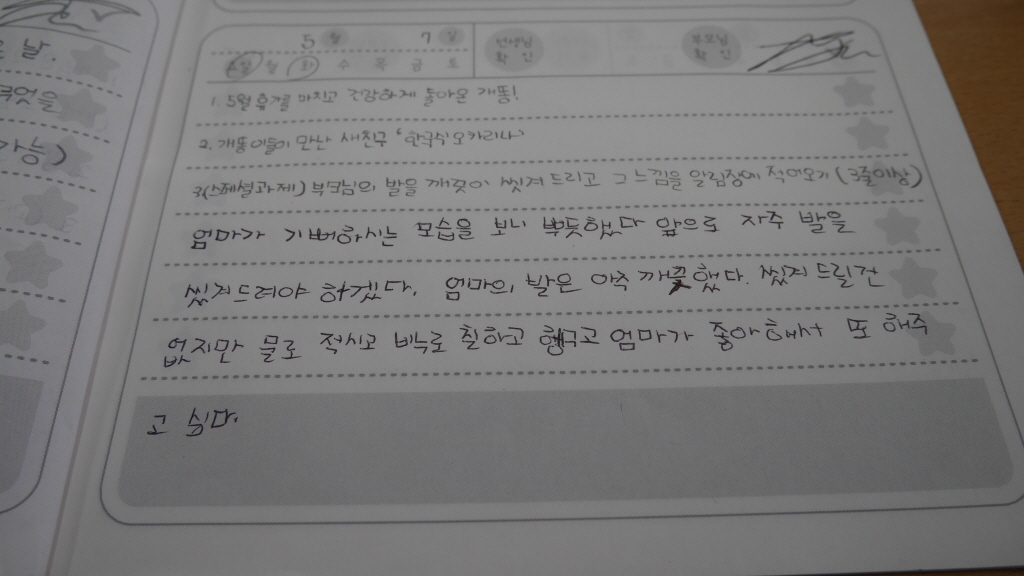 날.
무엇을
가능)
5월 7일
선생님 확인
부모님 확인
일 월 화 수 목 금 토
1. 5월 휴가를 마치고 건강하게 돌아온 개똥!
2. 개똥이들이 만난 새친구 '한국식오카리나'
3.(스페셜과제) 부모님의 발을 깨끗이 씻겨 드리고 그 느낌을 알림장에 적어오기 (3줄이상)
엄마가 기뻐하시는 모습을 보니 뿌듯했다 앞으로 자주 발을
씼겨드려야 하겠다. 엄마의 발은 아주 깨끗했다. 씼겨 드릴건
없지만 물로 적시고 비누로 칠하고 헹구고 엄마가 좋아해서 또 해주
고 싶다.